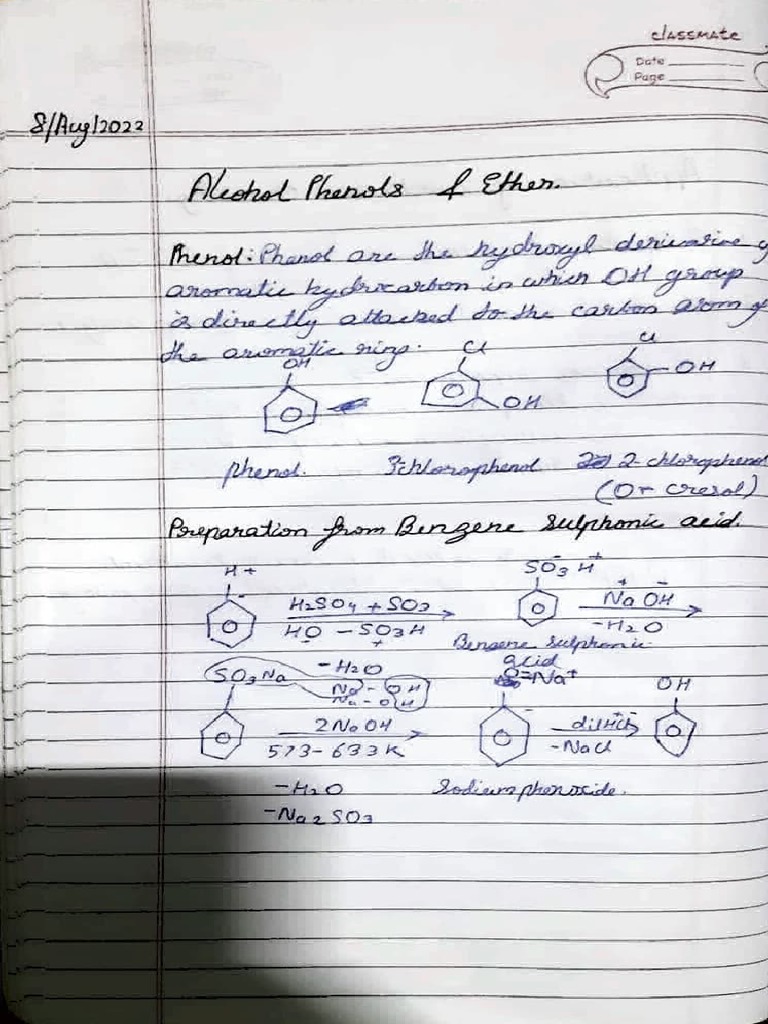 classmate
Date
Page
8/Aug/2022
Alcohol Phenols & Ether.
Phenol: Phenol are the hydroxyl derivative
aromatic hydrocarbon in which OH group
is directly attached to the carbon atom of
the aromatic ring.
OH Cl Cl
OH OH
phenol. 3chlorophenol 2-chlorophenol
(O- cresol)
Preparation from Benzene sulphonic acid.
H+ SO3- H+
H2SO4 + SO3 Na+ OH-
HO- - SO3H+ -H2O
Benzene sulphonic
acid
SO3Na -H2O O-Na+ OH
Na - OH
Na - OH
2NaOH dil HCl
573-633K -NaCl
-H2O Sodium phenoxide.
-Na2SO3